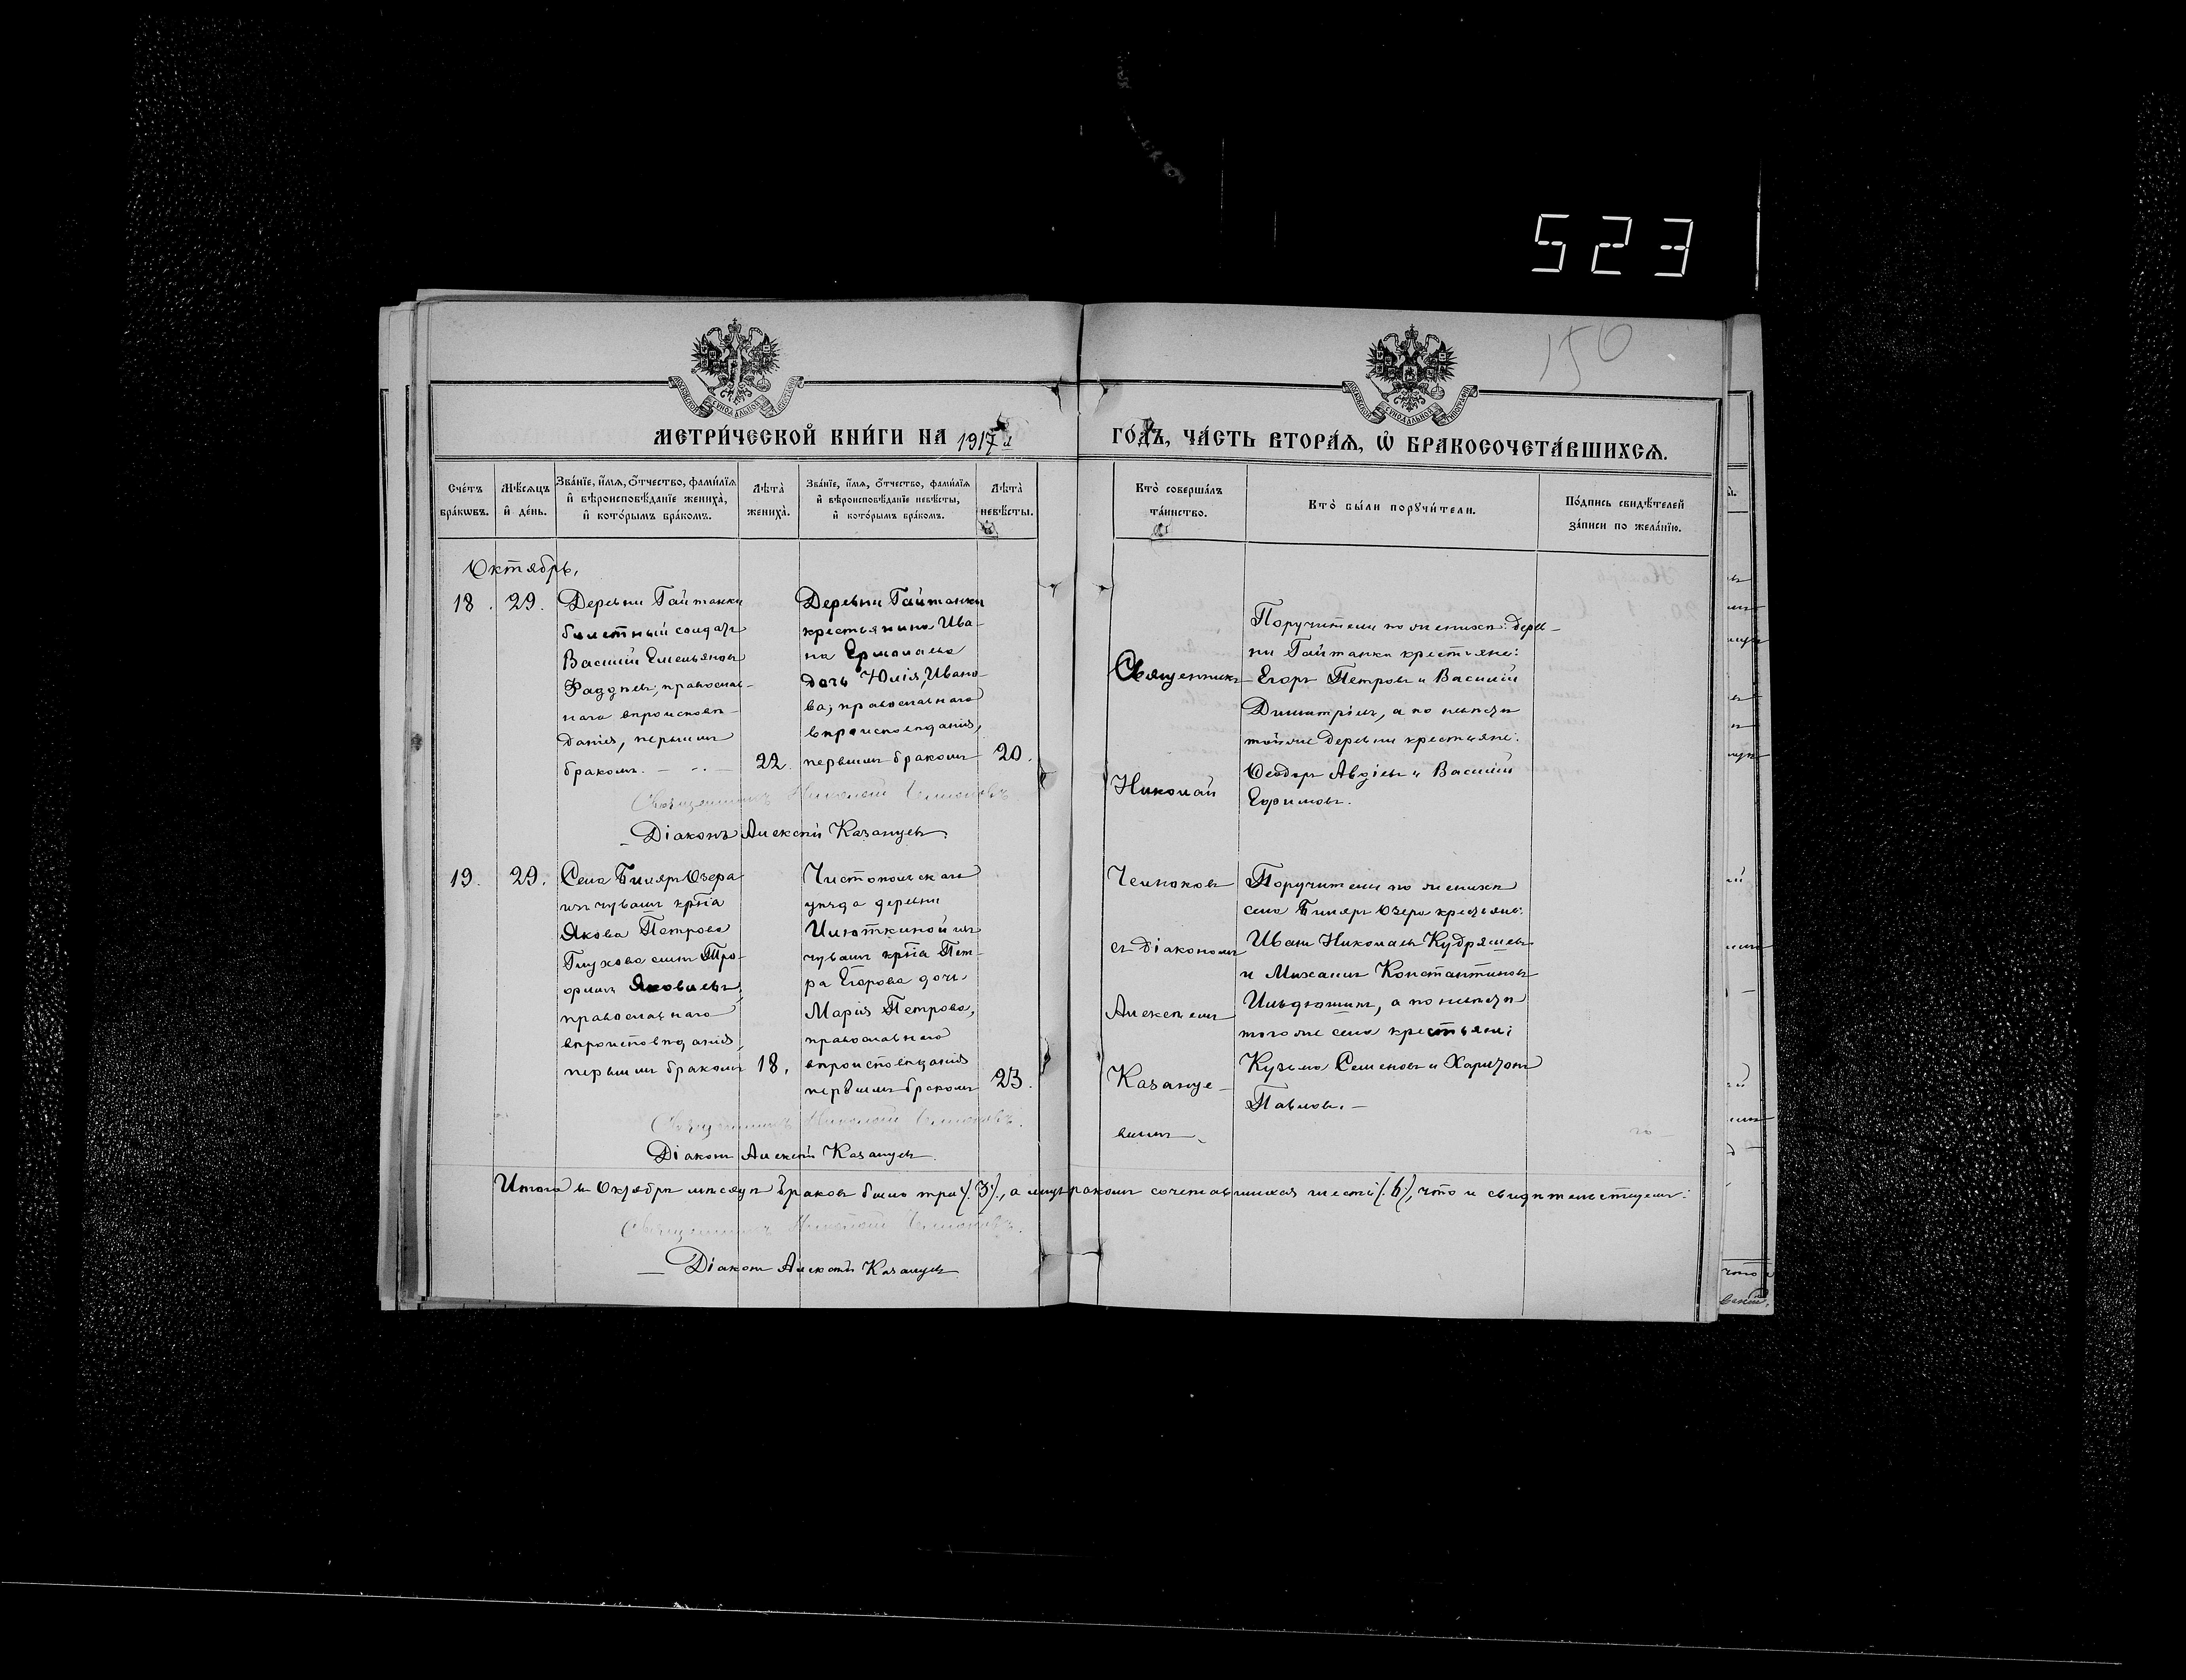 523
150
МЕТРИ́ЧЕСКОЙ КНИ́ГИ НА 1917 й ГО́ДЪ, ЧА́СТЬ ВТОРА́Я, Ѡ БРАКОСОЧЕТА́ВШИХСЯ.
Сче́тъ бра́кѡвъ.
Мѣ́сяцъ и де́нь.
Зва́нїе, и́мя, ѻ́тчество, фами́лїя и вѣроисповѣ́данїе жениха̀, и кото́рымъ бра́комъ.
Лѣ́та̀ жениха̀.
Зва́нїе, и́мя, ѻ́тчество, фами́лїя и вѣроисповѣ́данїе невѣ́сты, и кото́рымъ бра́комъ.
Лѣ́та̀ невѣ́сты.
Кто̀ соверша́лъ та́инство.
Кто̀ бы́ли порꙋчи́тели.
По́дпись свидѣ́телей за́писи по жела́нїю.
Октябрь.
18. 29.
Деревни Гайтанки
билетный солдатъ
Василій Емельяновъ
Фаддѣевъ, православ-
наго вѣроисповѣ-
данія, первымъ
бракомъ. 22.
Деревни Гайтанки
крестьянина Ива-
на Ермолаева
дочь Юлія Ивано-
ва, православнаго
вѣроисповѣданія,
первымъ бракомъ 20.
Священникъ
Николай
Поручители по женихѣ: дерев-
ни Гайтанки крестьяне:
Егоръ Петровъ и Василій
Димитріевъ, а по невѣстѣ
той же деревни крестьяне:
Ѳеодоръ Авдіевъ и Василій
Ефимовъ.
Священникъ Николай Челноковъ
Діаконъ Алексѣй Казанцевъ.
19. 29.
Села Биляръ Озера
изъ чувашъ кр-на
Якова Петрова
Глухова сынъ Тро-
фимъ Яковлевъ,
православнаго
вѣроисповѣданія,
первымъ бракомъ 18.
Чистопольскаго
уѣзда деревни
Ишуткиной изъ
чувашъ кр-на Пет-
ра Егорова дочь
Марія Петрова,
православнаго
вѣроисповѣданія
первымъ бракомъ 23.
Челноковъ
съ діакономъ
Алексѣемъ
Казанце-
вымъ.
Поручители по женихѣ
села Биляръ Озера крестьяне:
Иванъ Николаевъ Кудряшевъ
и Михаилъ Константиновъ
а по невѣстѣ
того же села крестьяне:
Кузьма Семеновъ и Харитонъ
Павловъ.
Священникъ Николай Челноковъ.
Діаконъ Алексѣй Казанцевъ.
Итого въ Октябрѣ мѣсяцѣ браковъ было три /:3:/, а лицъ бракомъ сочетавшихся шесть /:6:/, что и свидѣтельствуемъ:
Священникъ Николай Челноковъ.
Діаконъ Алексѣй Казанцевъ